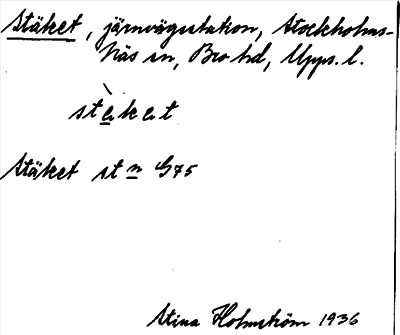 Stäket, järnvägsstation, Stockholms-
Näs sn, Bro hd, Upps. l.
stèkεt
Stäket st n G75
Stina Holmström 1936